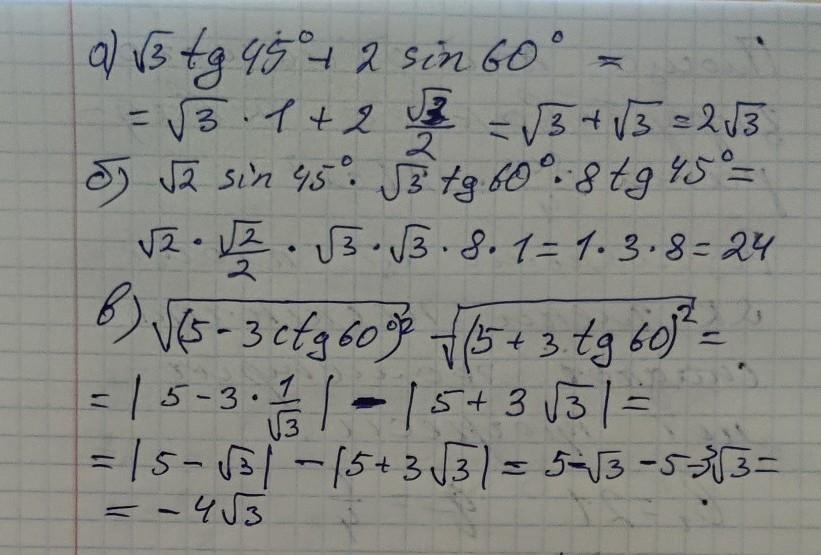 а) √3 tg 45° + 2 sin 60° =
= √3 · 1 + 2 √3/2 = √3 + √3 = 2√3
б) √2 sin 45° · √3 tg 60° · 8 tg 45° =
√2 · √2/2 · √3 · √3 · 8 · 1 = 1 · 3 · 8 = 24
в) √(5 - 3 ctg 60°)² - √(5 + 3 tg 60)² =
= | 5 - 3 · 1/√3 | - | 5 + 3 √3 | =
= | 5 - √3 | - | 5 + 3 √3 | = 5 - √3 - 5 - 3√3 =
= - 4√3